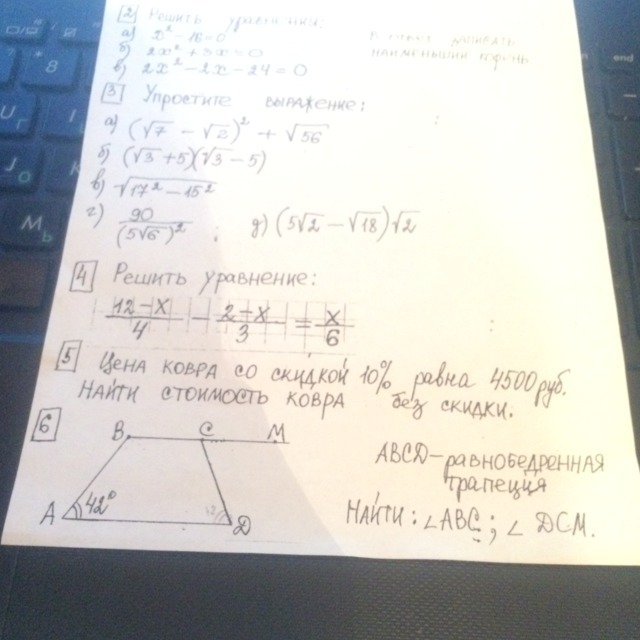 2 Решить уравнения:
а) x² − 16 = 0 В ответ записать
б) 2x² + 3x = 0 наименьший корень
в) 2x² − 2x − 24 = 0
3 Упростите выражение:
а) (√7 − √2)² + √56
б) (√3 + 5)(√3 − 5)
в) √17² − 15²
г) 90/(5√6)² ; д) (5√2 − √18)√2
4 Решить уравнение:
12−x/4 − 2−x/3 = x/6
5 Цена ковра со скидкой 10% равна 4500 руб.
Найти стоимость ковра без скидки.
6
B C M
ABCD – равнобедренная
трапеция
A 42° D
Найти: ∠ABC ; ∠ DCM.
* 8
U I
J O
M Ь
end